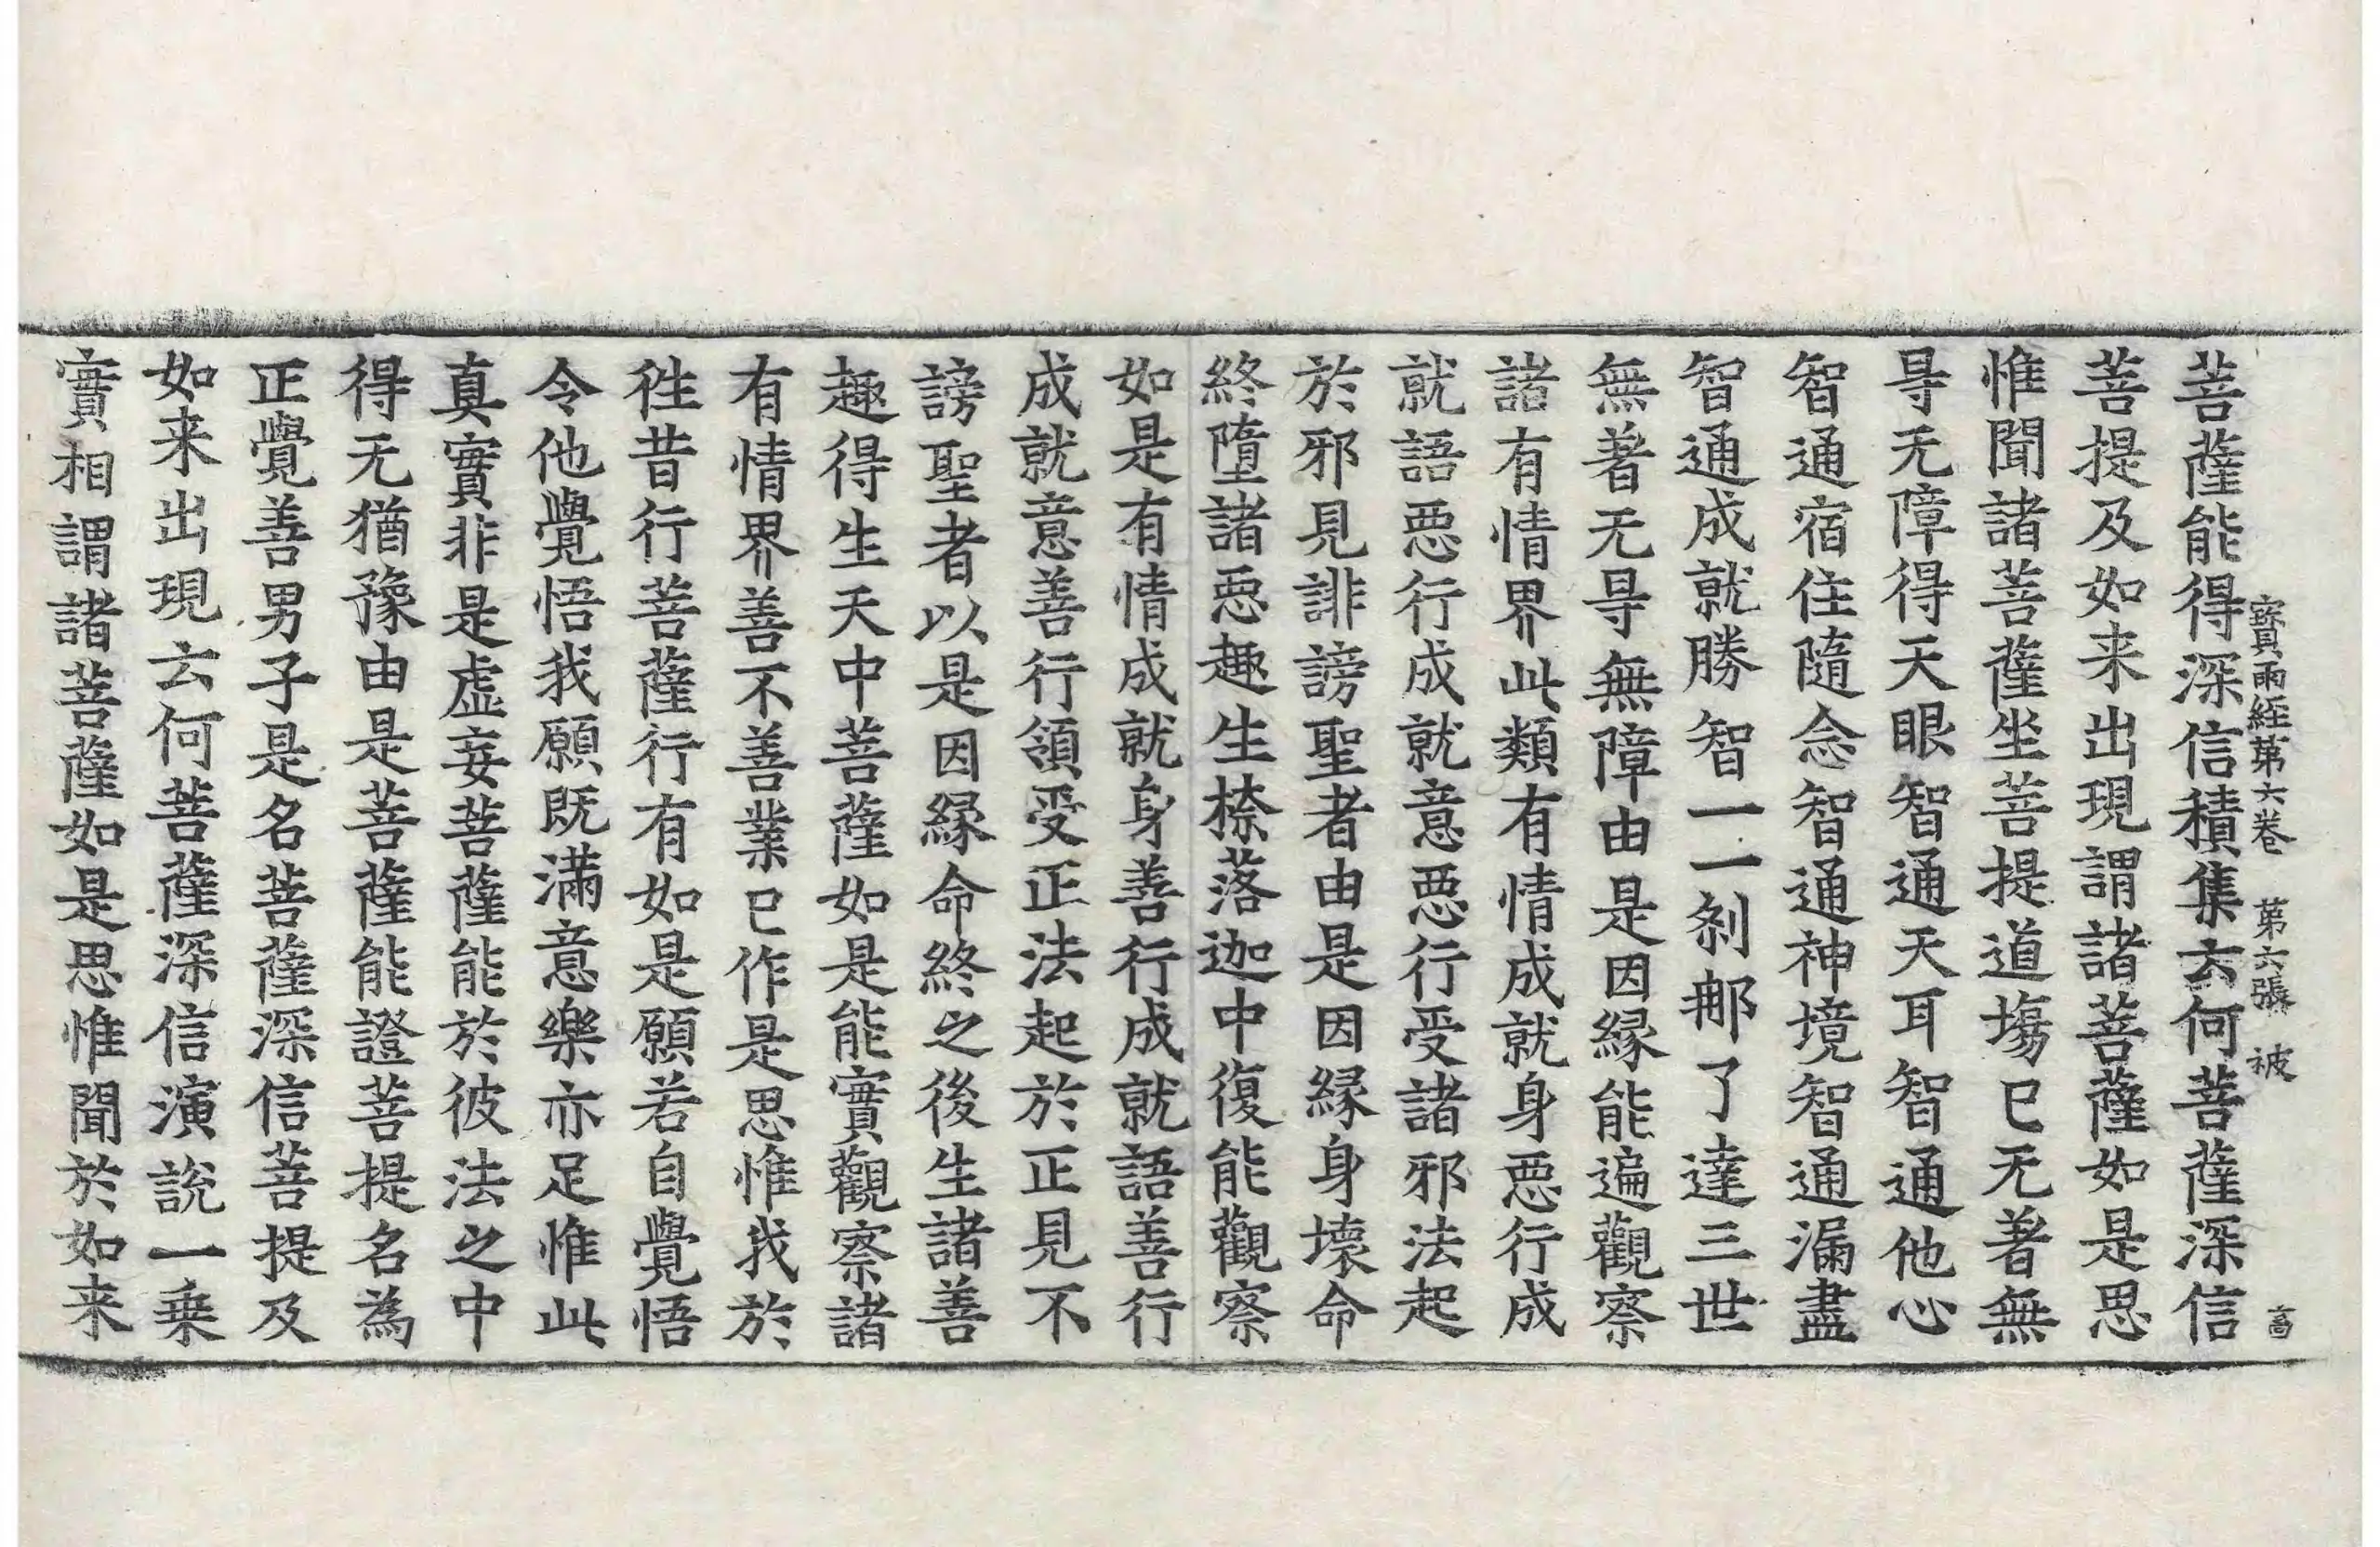 寳雨經第六卷　第六張　被
菩薩能得深信積集云何菩薩深信
菩提及如来出現謂諸菩薩如是思
惟聞諸菩薩坐菩提道場已无著無
㝵无障得天眼智通天耳智通他心
智通宿住隨念智通神境智通漏盡
智通成就勝智一一刹那了達三世
無著无㝵無障由是因縁能遍觀察
諸有情界此類有情成就身惡行成
就語惡行成就意惡行受諸邪法起
於邪見誹謗聖者由是因縁身壞命
終墮諸惡趣生捺落迦中復能觀察
如是有情成就身善行成就語善行
成就意善行領受正法起於正見不
謗聖者以是因縁命終之後生諸善
趣得生天中菩薩如是能實觀察諸
有情界善不善業已作是思惟我於
徃昔行菩薩行有如是願若自覺悟
令他覺悟我願既满意樂亦足惟此
真實非是虚妄菩薩能於彼法之中
得无猶豫由是菩薩能證菩提名為
正覺善男子是名菩薩深信菩提及
如来出現云何菩薩深信演說一乗
實相謂諸菩薩如是思惟聞於如来